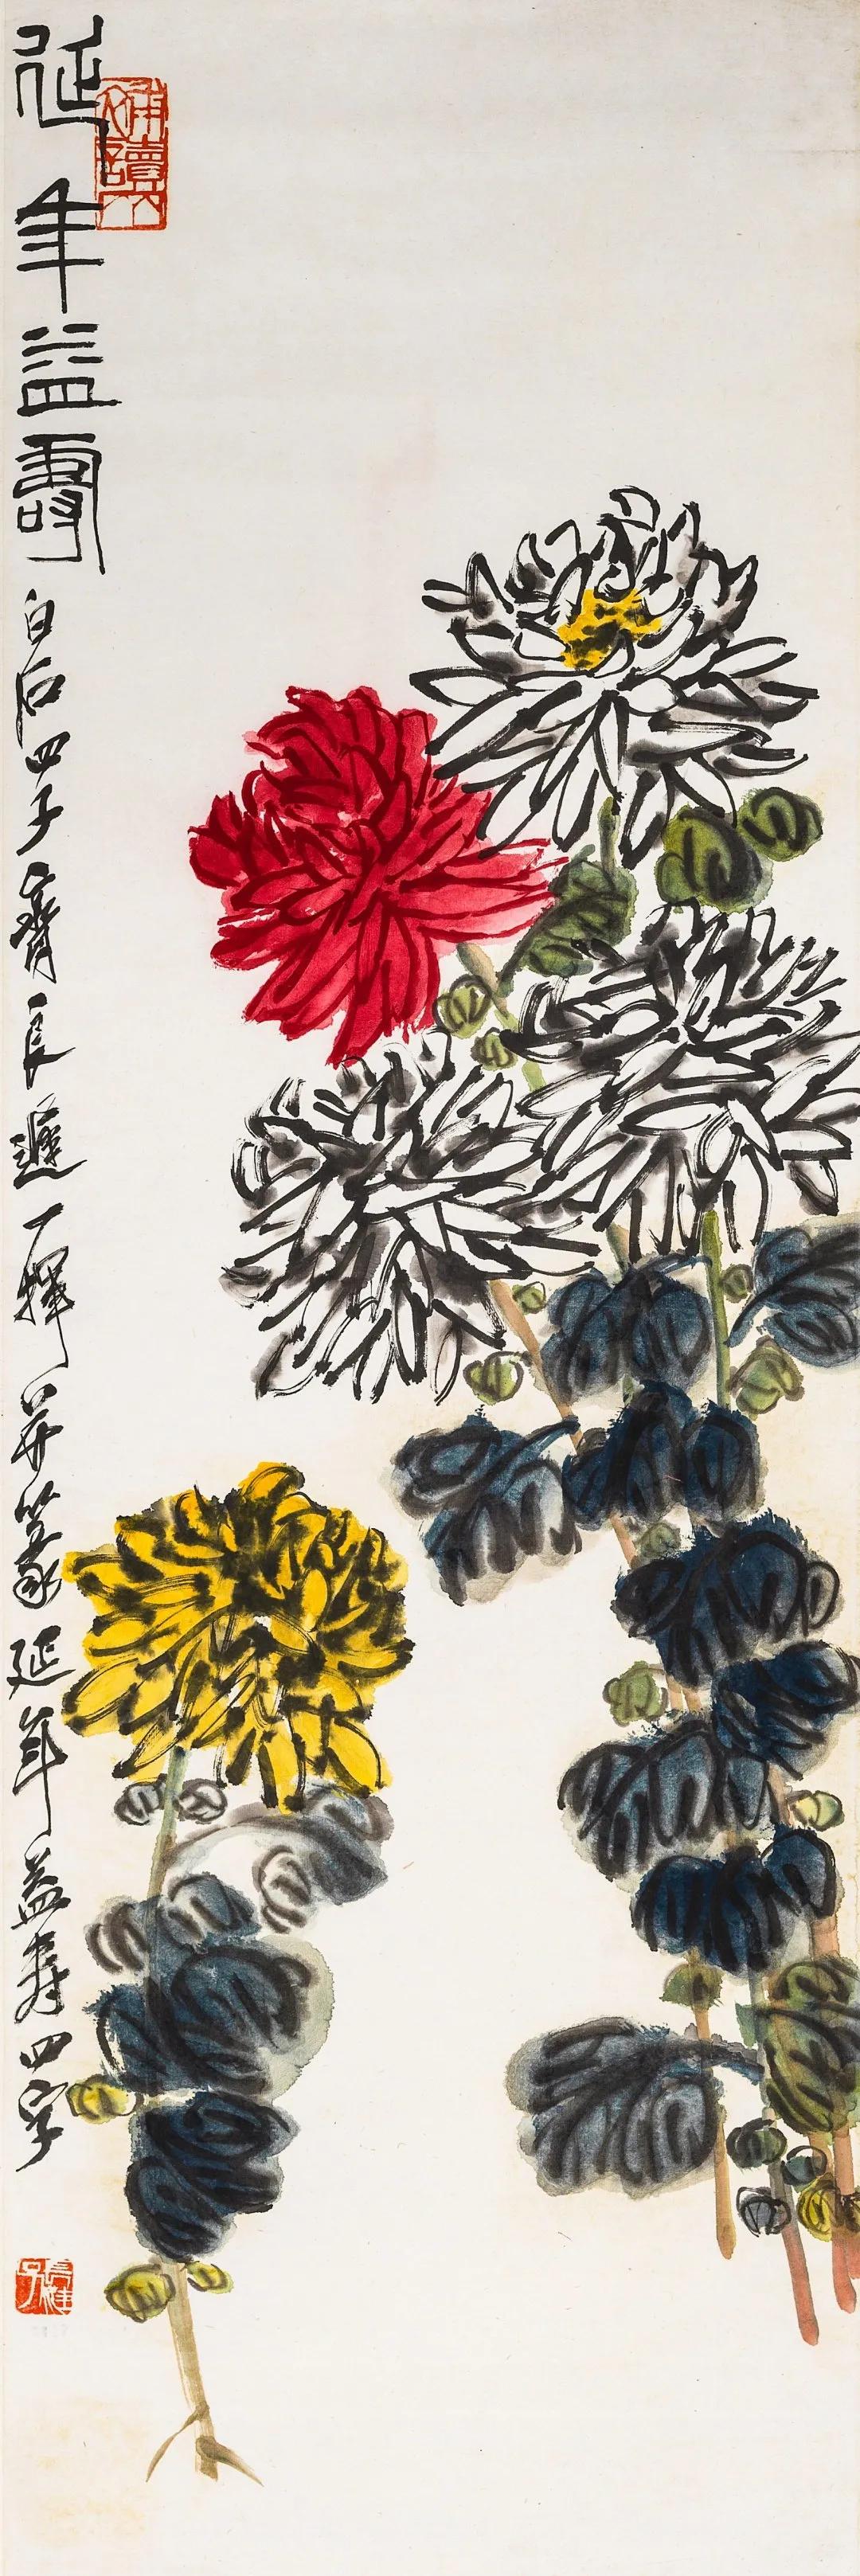 延年益壽
白石四子齊良遲一揮并篆延年益壽四字
補讀